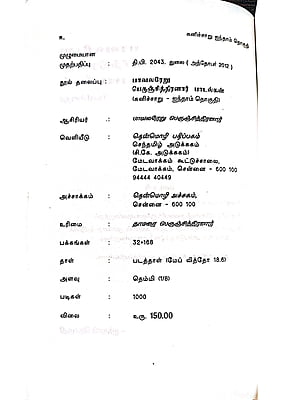 உ. கனிச்சாறு ஐந்தாம் தொகுதி
முழுமையான
முதற்பதிப்பு : தி.பி. 2043, துலை (அத்தோபர் 2012)
நூல் தலைப்பு : பாவலரேறு
பெருஞ்சித்திரனார் பாடல்கள்
(கனிச்சாறு - ஐந்தாம் தொகுதி)
ஆசிரியர் : பாவலரேறு பெருஞ்சித்திரனார்
வெளியீடு : தென்மொழி பதிப்பகம்
செந்தமிழ் அடுக்ககம்
(சி.கே. அடுக்ககம்)
மேடவாக்கம் கூட்டுச்சாலை,
மேடவாக்கம், சென்னை - 600 100
94444 40449
அச்சாக்கம் : தென்மொழி அச்சகம்,
சென்னை - 600 100
உரிமை : தாமரை பெருஞ்சித்திரனார்
பக்கங்கள் : 32+168
தாள் : படத்தாள் (மேப் லித்தோ 18.6)
அளவு : தெம்மி (1/8)
படிகள் : 1000
விலை : உரு. 150.00